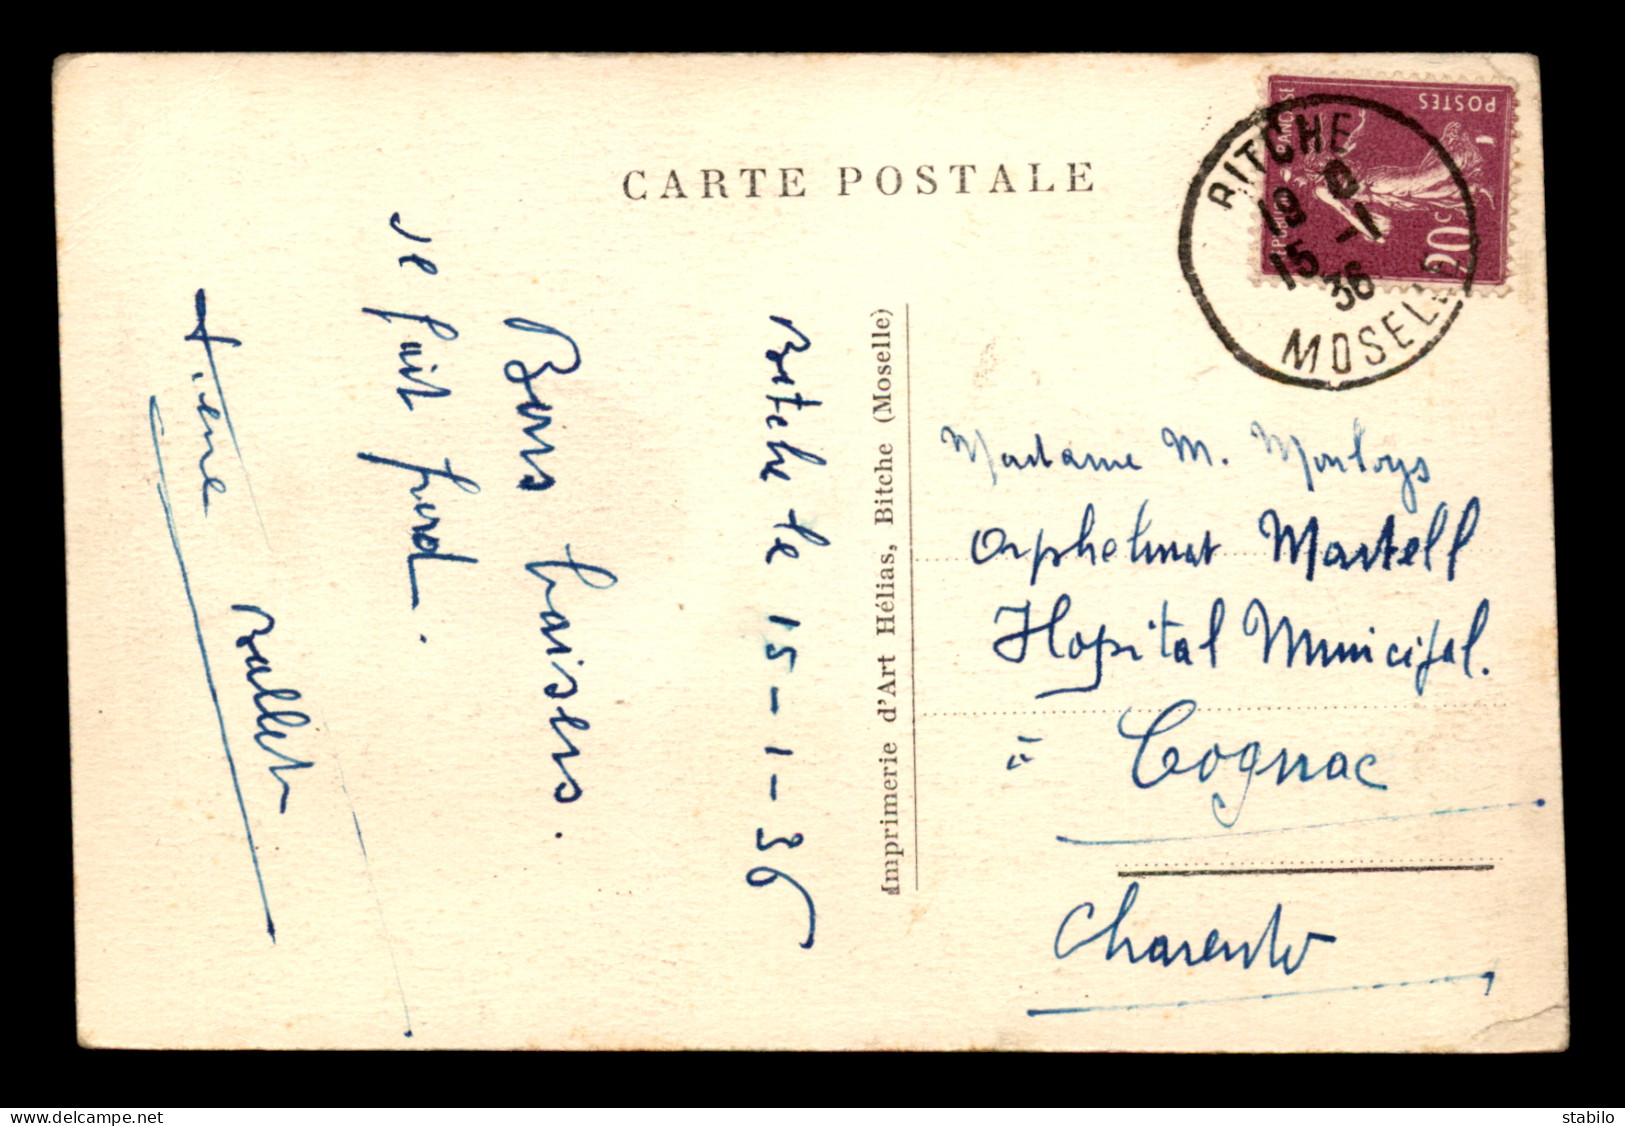 CARTE POSTALE
POSTES
20c
BITCHE
15 -1
36
MOSELLE
Bitche le 15-1-36
Bons baisers.
se fait froid.
Ballet
Imprimerie d'Art Hélias, Bitche (Moselle)
Madame M.
Orphelinat Martell
Hopital Municipal.
à Cognac
Charente
www.delcampe.net
stabilo